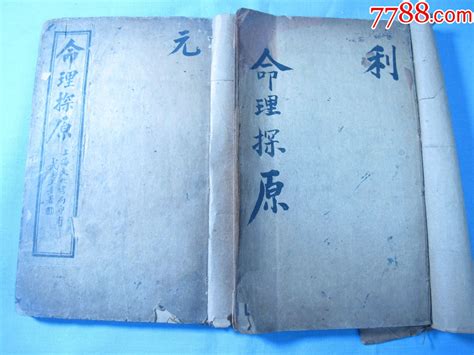 7788.com
元
命理探原
利
命理探原